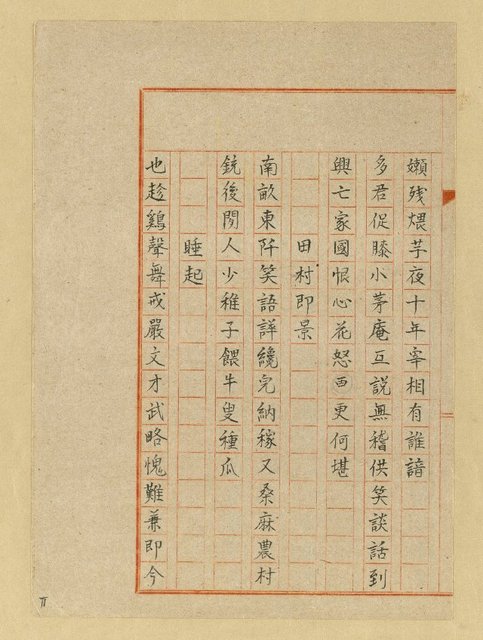 嬾残煨芋夜十年宰相有誰諳
多君促膝小茅庵互說無稽供笑談話到
興亡家國恨心花怒西更何堪
田村即景
南畝東阡笑語譁纔完納稼又桑麻農村
銃後閒人少稚子餵牛叟種瓜
睡起
也趁鷄聲舞戒嚴文才武略愧難兼即今